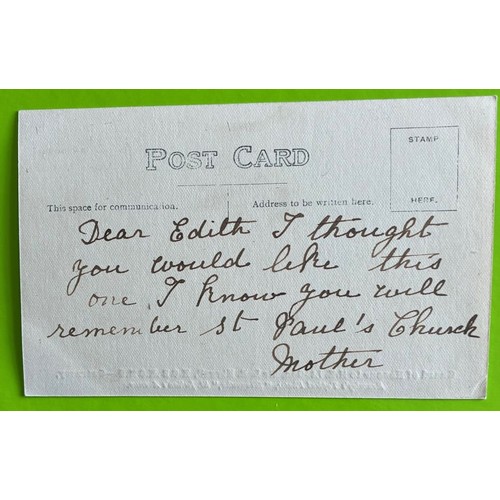 POST CARD
STAMP
HERE.
This space for communication.
Address to be written here.
Dear Edith I thought
you would like this
one I know you will
remember St Paul's Church
Mother